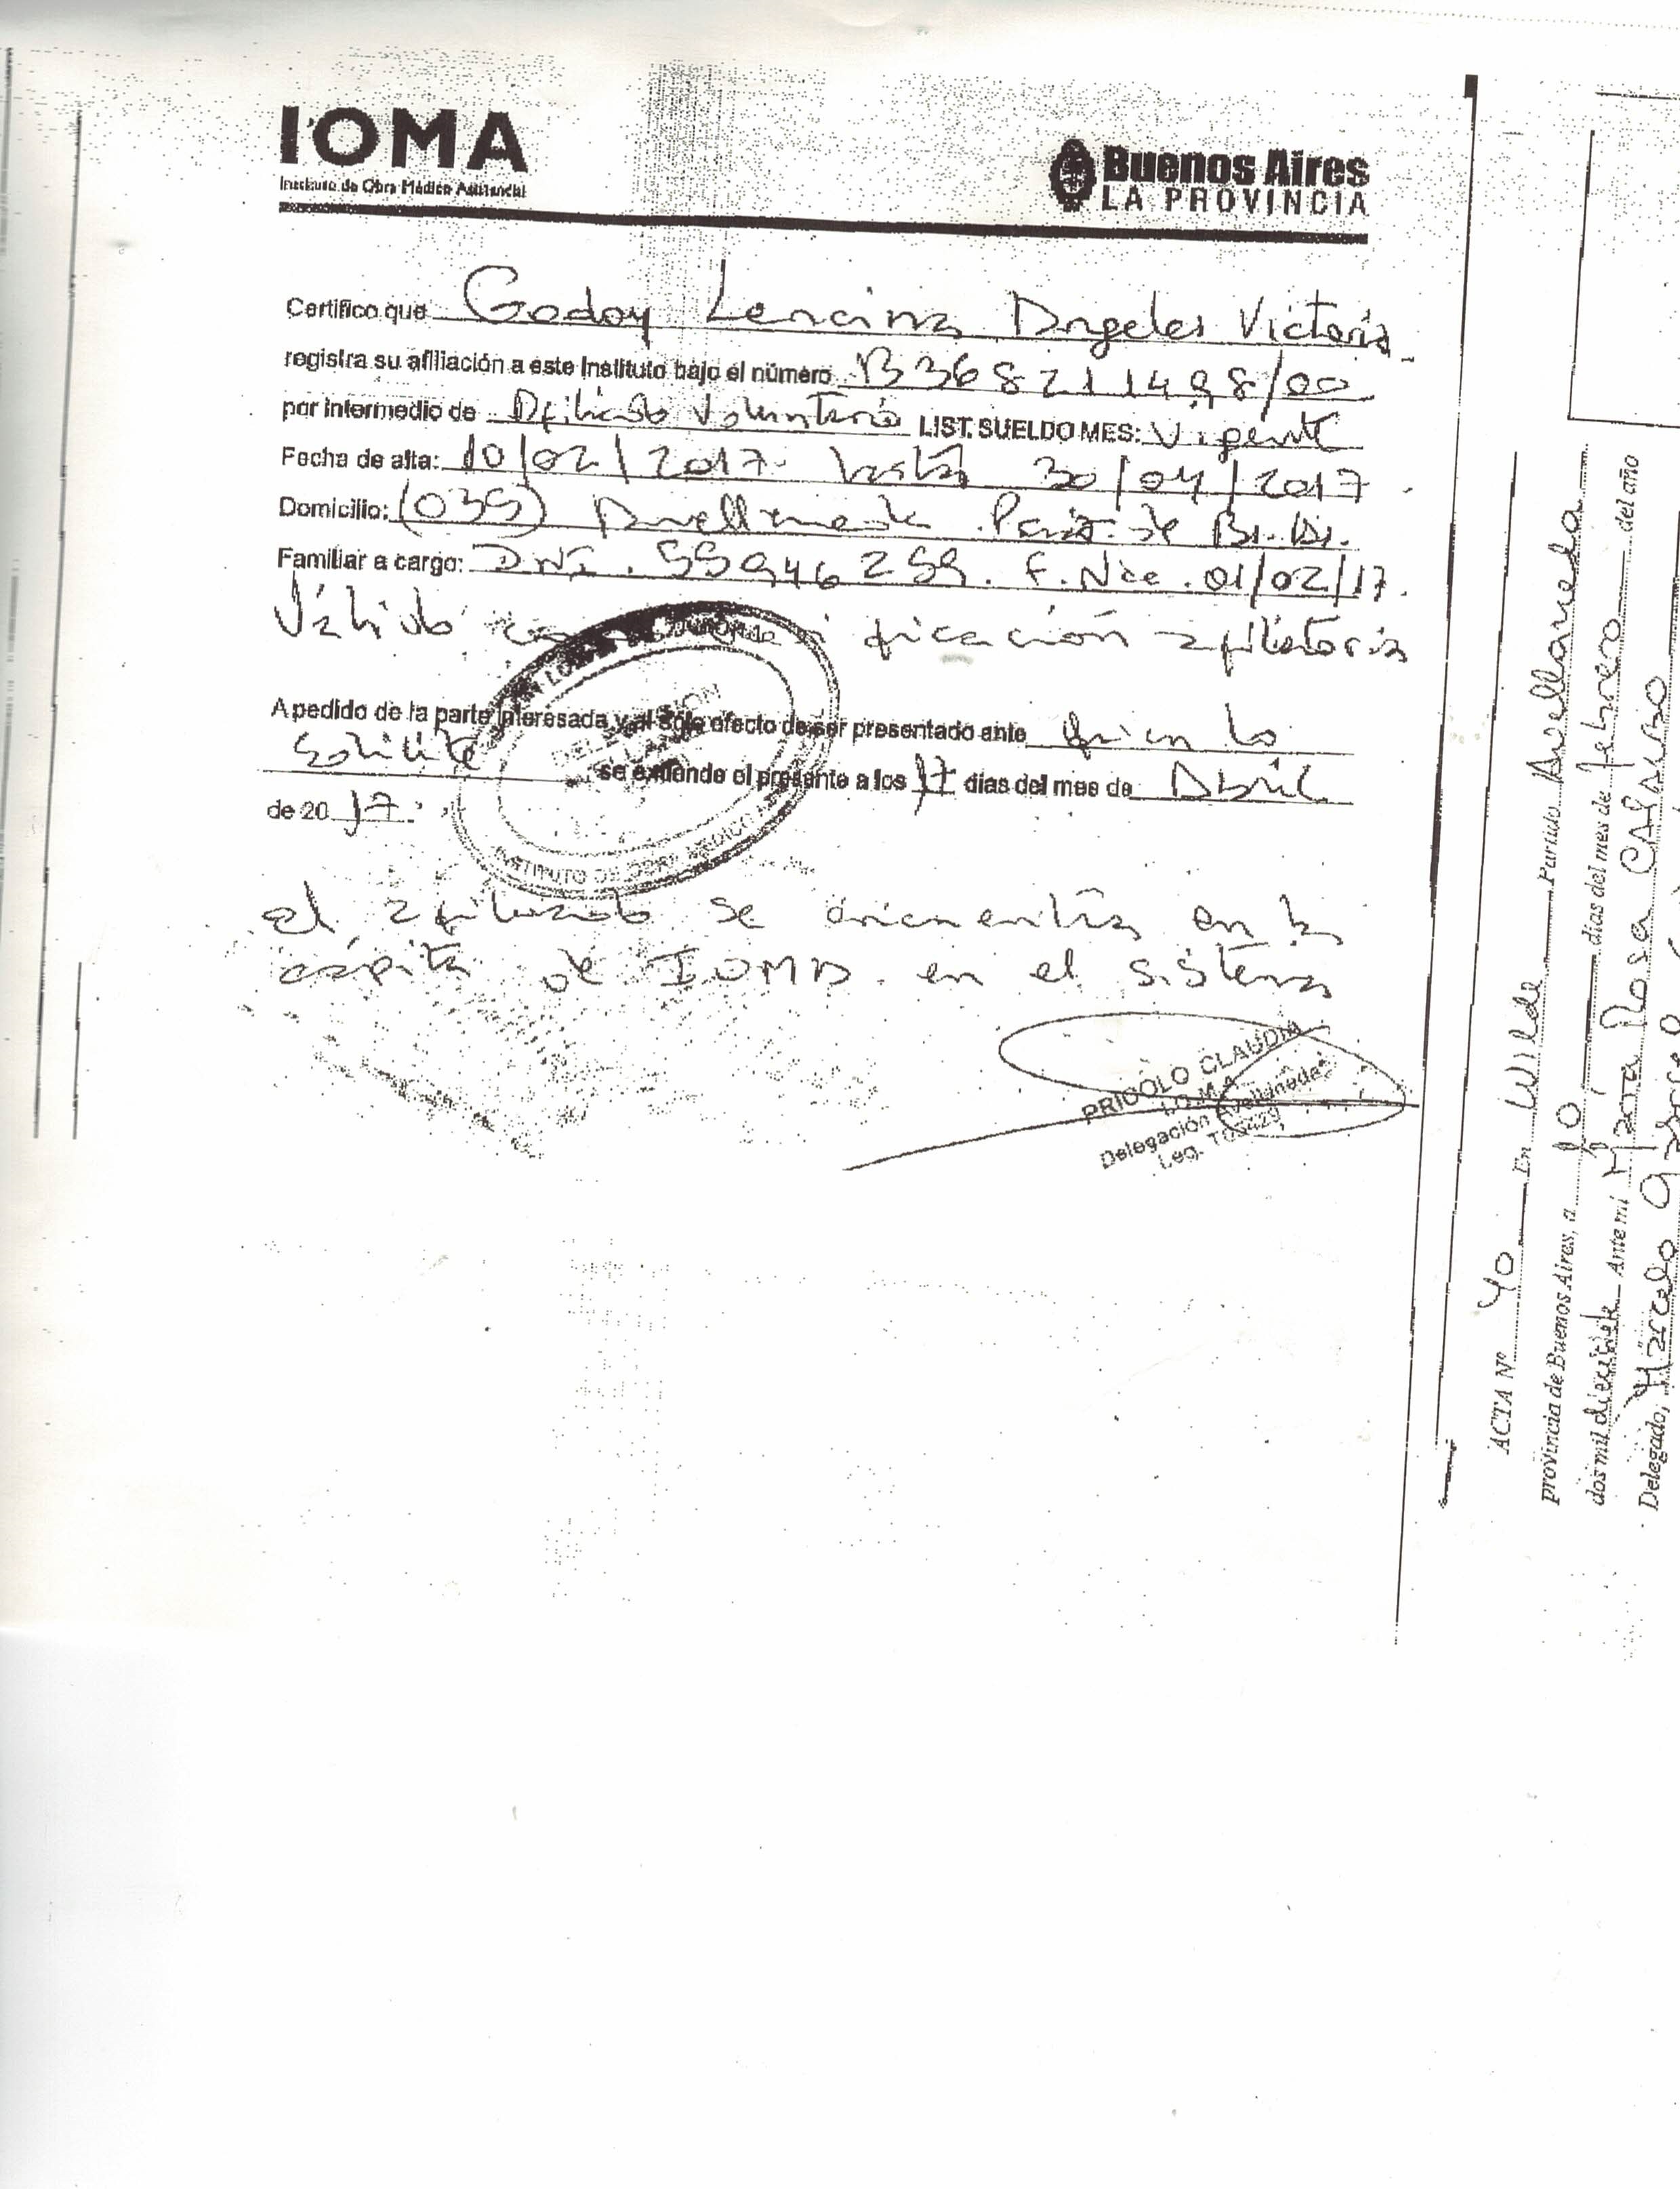 IOMA
Instituto de Obra Médico Asistencial
Buenos Aires
LA PROVINCIA
Certifico que Godoy Lencina Angeles Victoria
registra su afiliación a este Instituto bajo el número B368211498/00
por intermedio de Afiliado Voluntario LIST. SUELDO MES: Vigente
Fecha de alta: 10/02/2017 hasta 30/04/2017
Domicilio: (035) Avellaneda Pcia. de Bs. As.
Familiar a cargo: DNI. 55946259. F. Nac. 01/02/17.
Válido ficación afiliatoria
A pedido de la parte interesada y al sólo efecto de ser presentado ante quien lo
solicite se extiende el presente a los 17 días del mes de Abril
de 2017.
INSTITUTO DE OBRA MEDICO
el afiliado se encuentra en la
cápita de IOMA en el sistema
PRIGOLO CLAUDIA
I.O.M.A
Delegación Avellaneda
Leg.
ACTA Nº 40 En Wilde Partido Avellaneda
provincia de Buenos Aires, a 10 días del mes de febrero del año
dos mil diecisiete Ante mí María Rosa
Delegado, Marcelo